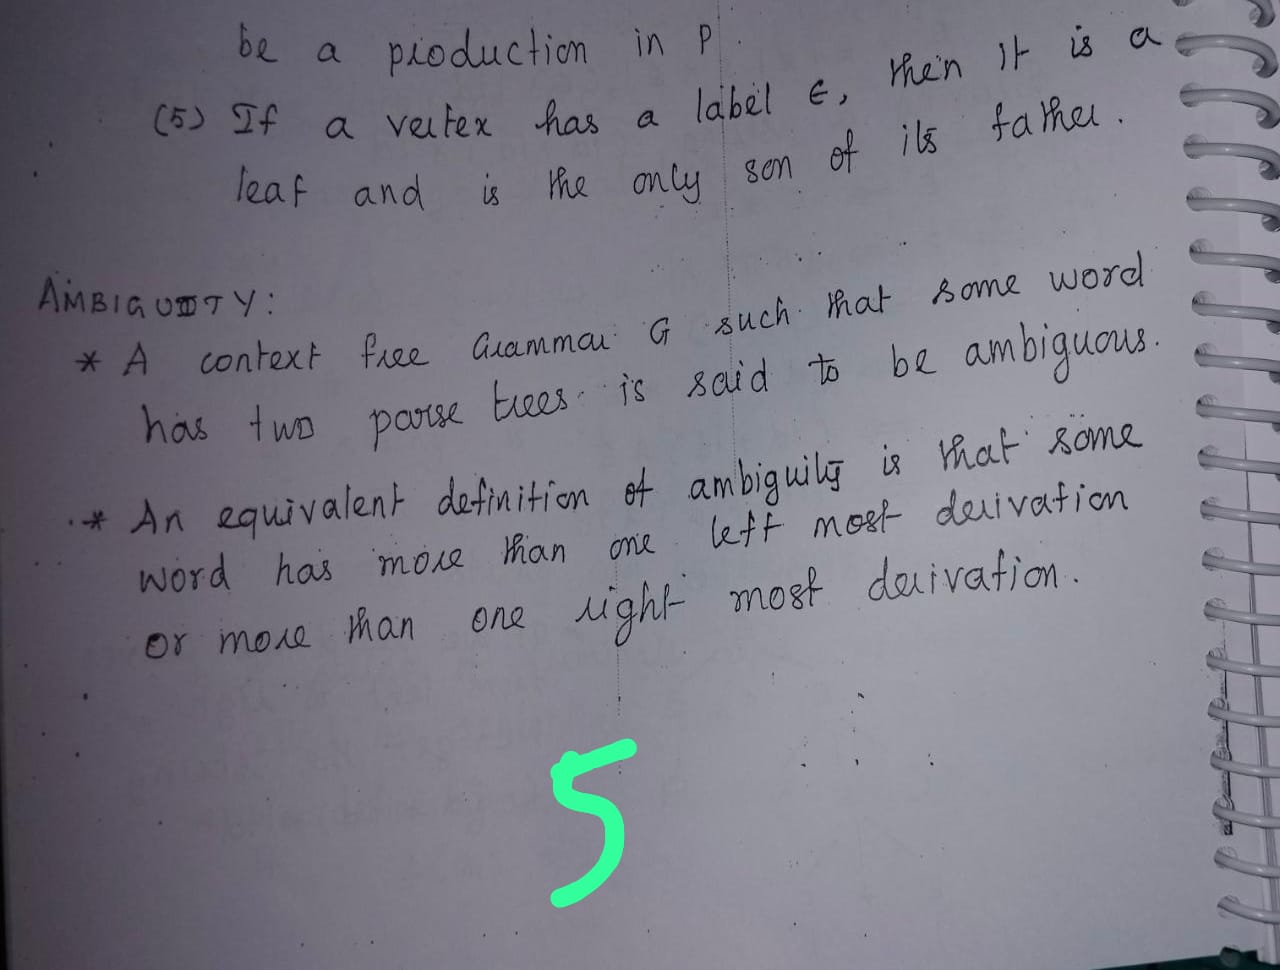 be a production in P.
(5) If a vertex has a label ϵ, then it is a
leaf and is the only son of its father.
AMBIGUITY:
* A context free Grammar G such that some word
has two parse trees is said to be ambiguous.
* An equivalent definition of ambiguity is that some
word has more than one left most derivation
or more than one right most derivation.
5